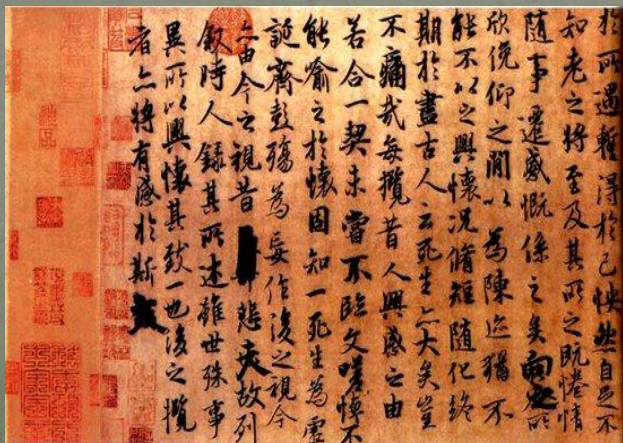 於所遇暫得於己怏然自足不
知老之將至及其所之既惓情
随事遷感慨係之矣向之所
欣俛仰之閒以為陳迹猶不
能不以之興懷況脩短随化終
期於盡古人云死生亦大矣豈
不痛哉每攬昔人興感之由
若合一契未嘗不臨文嗟悼不
能喻之於懷固知一死生為虛
誕齊彭殤為妄作後之視今
亦由今之視昔悲夫故列
敘時人錄其所述雖世殊事
異所以興懷其致一也後之攬
者亦將有感於斯文